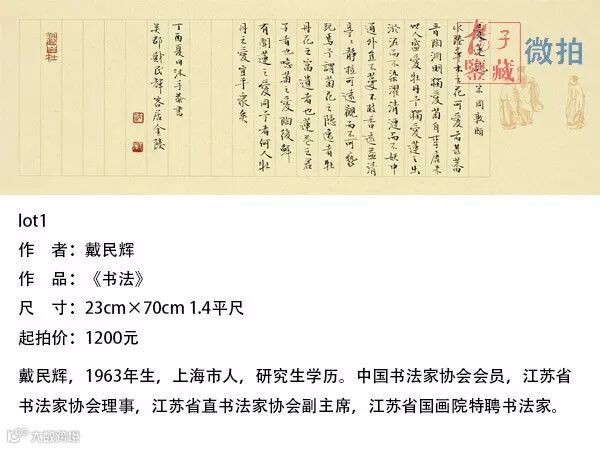 愛蓮說 宋 周敦頤
水陸草木之花可愛者甚蕃
晉陶淵明獨愛菊自李唐來
世人盛愛牡丹予獨愛蓮之出
淤泥而不染濯清漣而不妖中
通外直不蔓不枝香遠益清
亭亭靜植可遠觀而不可褻
玩焉予謂菊花之隱逸者牡
丹花之富貴者也蓮花之君
子者也噫菊之愛陶後鮮
有聞蓮之愛同予者何人牡
丹之愛宜乎衆矣
丁酉夏日沐手恭書
吳郡戴民輝客居金陵
子
鉴藏
微拍
lot1
作 者：戴民辉
作 品：《书法》
尺 寸：23cm×70cm 1.4平尺
起拍价：1200元
戴民辉，1963年生，上海市人，研究生学历。中国书法家协会会员，江苏省
书法家协会理事，江苏省直书法家协会副主席，江苏省国画院特聘书法家。
大数跨境